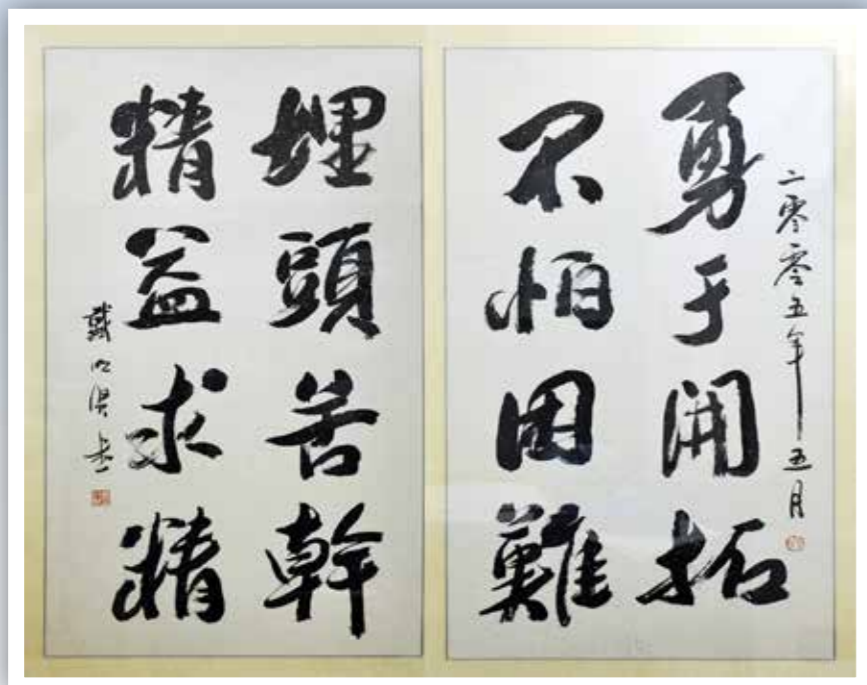 二零零五年五月
勇于開拓
不怕困難
埋頭苦幹
精益求精
戴明